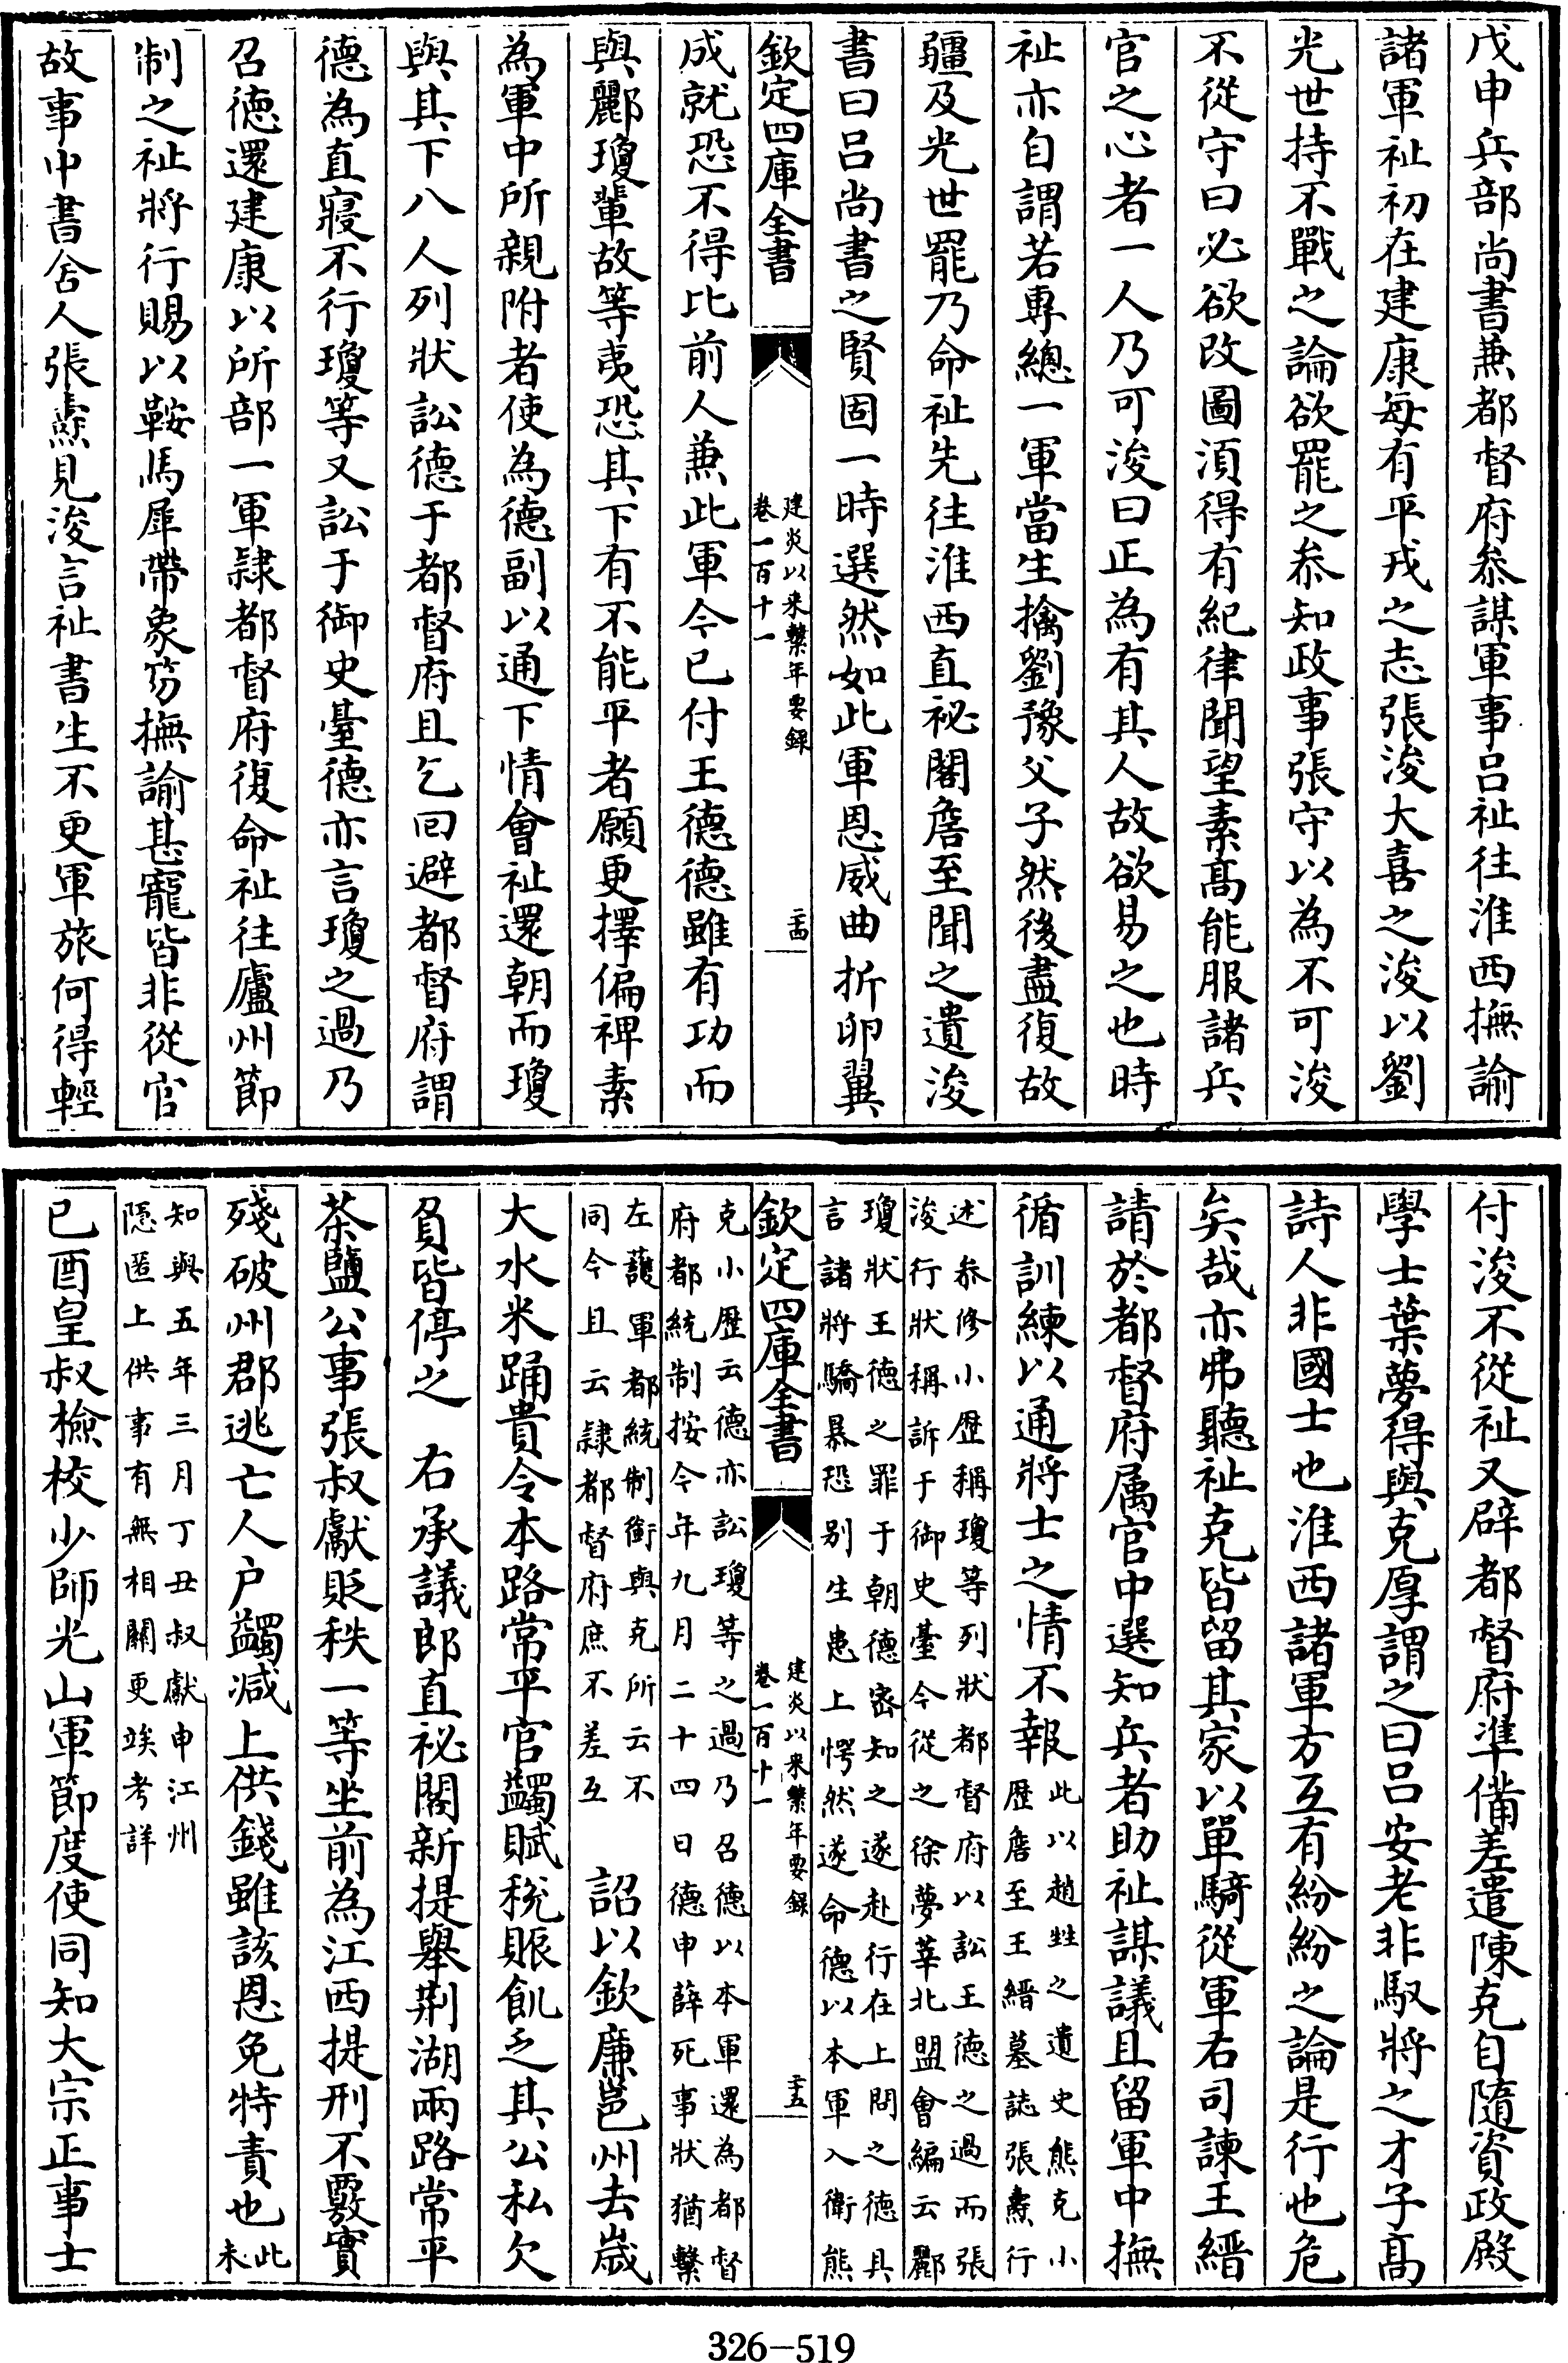 戊申兵部尚書兼都督府叅謀軍事吕祉往淮西撫諭
諸軍祉初在建康每有平戎之志張浚大喜之浚以劉
光世持不戰之論欲罷之叅知政事張守以為不可浚
不從守曰必欲改圖須得有紀律聞望素髙能服諸兵
官之心者一人乃可浚曰正為有其人故欲易之也時
祉亦自謂若專總一軍當生擒劉豫父子然後盡復故
疆及光世罷乃命祉先往淮西直祕閣詹至聞之遺浚
書曰吕尚書之賢固一時選然如此軍恩威曲折卵翼
欽定四庫全書
建炎以来繫年要録
卷一百十一
二十四
成就恐不得比前人兼此軍今已付王德德雖有功而
與酈瓊輩故等夷恐其下有不能平者願更擇偏裨素
為軍中所親附者使為德副以通下情會祉還朝而瓊
與其下八人列狀訟德于都督府且乞回避都督府謂
德為直寢不行瓊等又訟于御史臺德亦言瓊之過乃
召德還建康以所部一軍隸都督府復命祉往廬州節
制之祉將行賜以鞍馬犀帶象笏撫諭甚寵皆非從官
故事中書舍人張燾見浚言祉書生不更軍旅何得輕
付浚不從祉又辟都督府準備差遣陳克自隨資政殿
學士葉夢得與克厚謂之曰吕安老非馭將之才子髙
詩人非國士也淮西諸軍方互有紛紛之論是行也危
矣哉亦弗聽祉克皆留其家以單騎從軍右司諫王縉
請於都督府属官中選知兵者助祉謀議且留軍中撫
循訓練以通將士之情不報此以趙甡之遺史熊克小
歴詹至王縉墓誌張燾行
述叅修小歴稱瓊等列狀都督府以訟王德之過而張
浚行狀稱訴于御史臺今從之徐夢莘北盟會編云酈
瓊狀王德之罪于朝德宻知之遂赴行在上問之德具
言諸將驕暴恐别生患上愕然遂命德以本軍入衛熊
欽定四庫全書
建炎以来繫年要録
卷一百十一
二十五
克小歴云德亦訟瓊等之過乃召德以本軍還為都督
府都統制按今年九月二十四日德申薛死事狀猶繫
左䕶軍都統制銜與克所云不
同今且云隸都督府庶不差互
詔以欽廉邕州去嵗
大水米踊貴令本路常平官蠲賦税賑飢乏其公私欠
負皆停之　右承議郎直祕閣新提舉荆湖兩路常平
茶鹽公事張叔獻貶秩一等坐前為江西提刑不覈實
殘破州郡逃亡人户蠲减上供錢雖該恩免特責也此
未
知與五年三月丁丑叔獻申江州
隠匿上供事有無相關更竢考詳
已酉皇叔檢校少師光山軍節度使同知大宗正事士
326-519